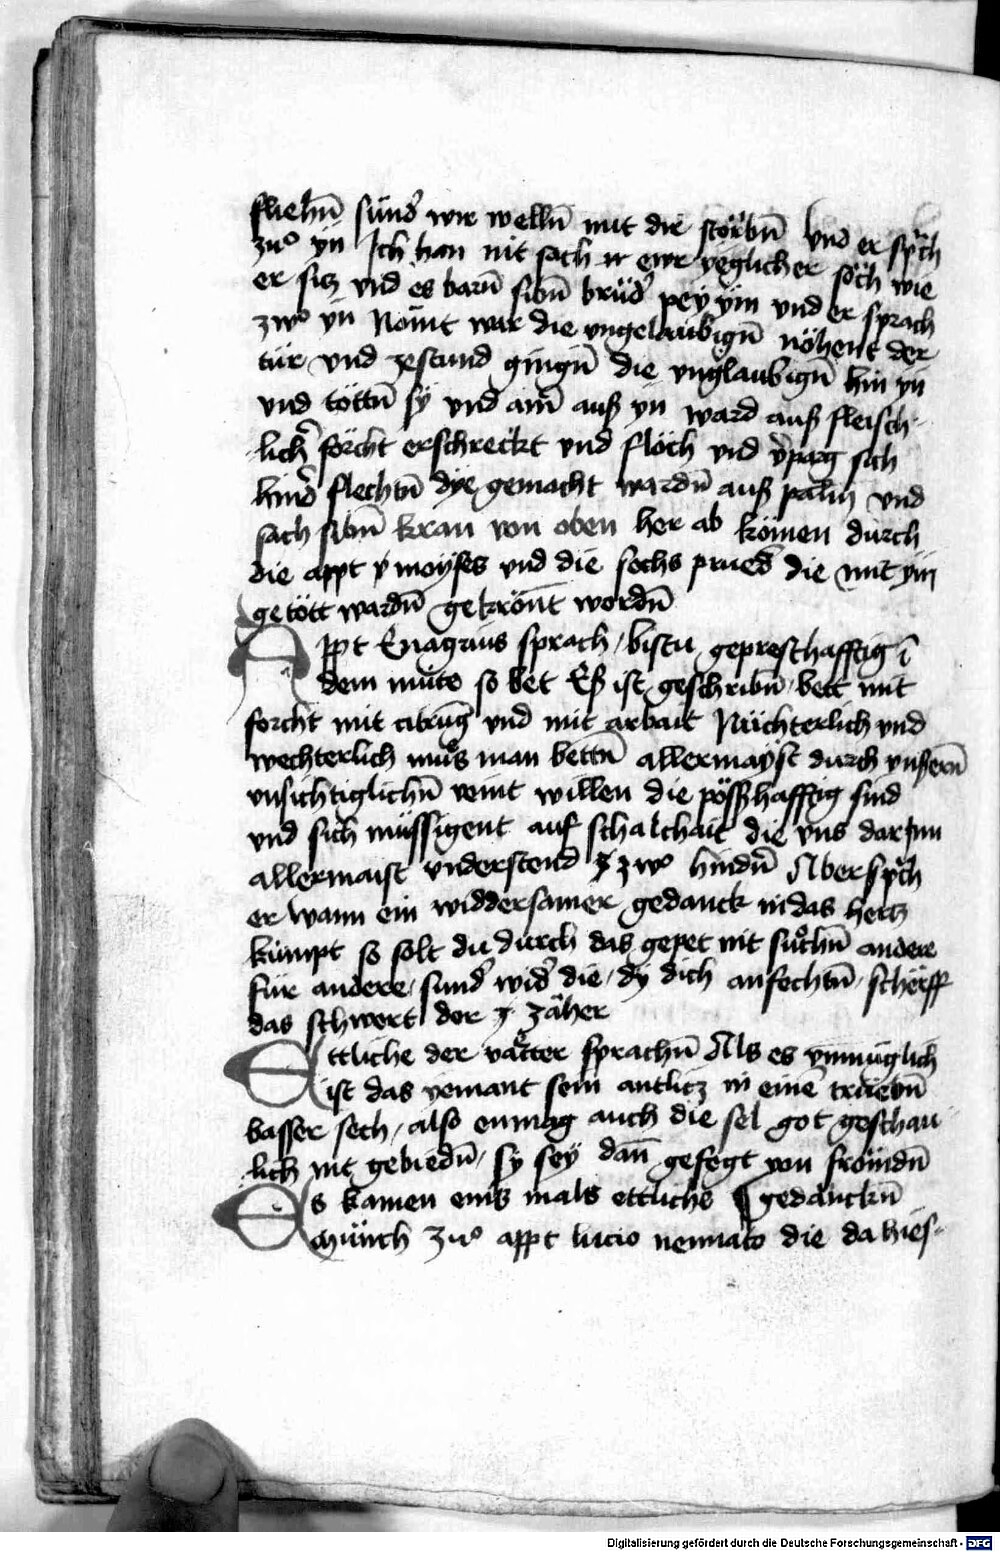 fliehn̄ sunđ wir welln̄ mit dir störbn̄ Und er sp̄ch
zuͦ yn Ich han nit sach ir ewr yeglicher sech wie
er sicz vnd es warn̄ sibn̄ brüđ pey yin vnd er sprach
zwͦ yn Nömt war die vngelaubign̄ nöhent der
tür vnd zestund gingn̄ die vnglaubign̄ hin yn
vnd töttn̄ sÿ vnd ain̄ auß yn ward auß fleisch
lich᷑ förcht erschreckt vnd flöch vnd v᷑parg sich
hind᷑ flechtn̄ dÿe gemacht wardn̄ auß palm vnd
sach sibn̄ kran von oben her ab kömen durch
die appt ÿ moÿses vnd die sechs prueđ die mit yin
getött wardn̄ gekrönt wordn̄
Appt Euagrius sprach / bistu gepresthafftig ī
dem mute so bet Eß ist geschribn̄ / bett mit
forcht mit citrūg vnd mit arbait Nüchterlich vnd
wechterlich muͦs man bettn̄ allermayst durch vnßern̄
vnsichtiglichn̄ veint willen die pößhafftig sind
vnd sich müssigent auf schalchait die vns dar jnn
allermaist vnderstend z zwͦ hindn̄ Aber sp̄ch
er wann ein widdersamer gedanck in das hertz
kumpt so solt du durch das gepet nit suͦchn̄ andere
für andere / sunđ wiđ die / dy dich anfechtn̄ / scherff
das schwert der z zäher
Ettliche der vätter sprachn̄ Als es vnmüglich
ist das yemant sein antlitz in einē truebn̄
wasser sech / also enmag auch die sel got geschau
lich nit gebiedn̄ / sy sey dan̄ gefegt von frömdn̄
Es kamen eins mals ettliche ¶ gedänckn̄
münch zuͦ appt lucio nennato die da hies-
Digitalisierung gefördert durch die Deutsche Forschungsgemeinschaft - DFG